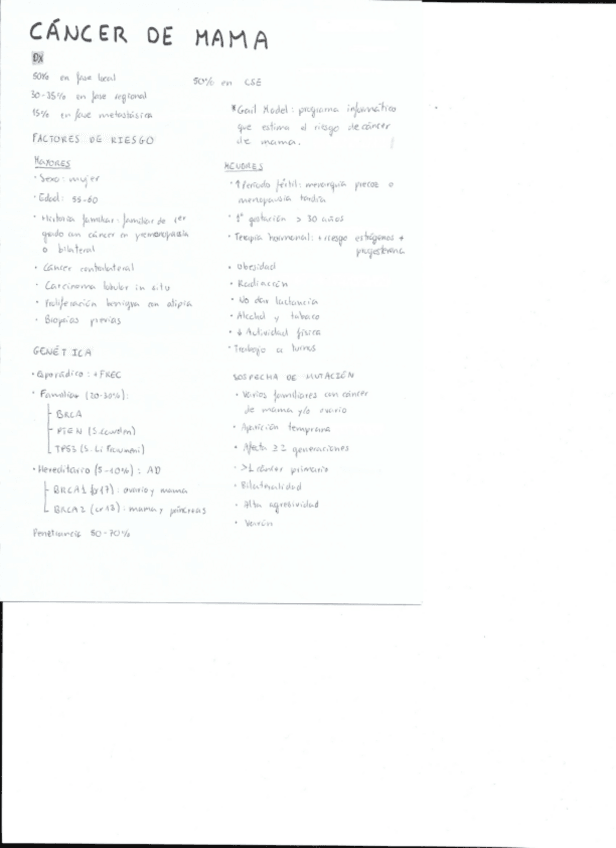 CÁNCER DE MAMA
DX
50% en fase local
30-35% en fase regional
15% en fase metastásica
50% en CSE
*Gail Model: programa informático
que estima el riesgo de cáncer
de mama.
FACTORES DE RIESGO
MAYORES
· Sexo: mujer
· Edad: 55-60
· Historia familiar: familiar de 1er
grado con cáncer en premenopausia
o bilateral
· Cáncer contralateral
· Carcinoma lobular in situ
· Proliferación benigna con atipia
· Biopsias previas
MENORES
· ↑ Periodo fértil: menarquia precoz o
menopausia tardía
· 1ª gestación > 30 años
· Terapia hormonal: + riesgo estrógenos +
progesterona
· Obesidad
· Radiación
· No dar lactancia
· Alcohol y tabaco
· ↓ Actividad física
· Trabajo a turnos
GENÉTICA
· Esporádico: + FREC
· Familiar (20-30%):
BRCA
PTEN (S. Cowden)
TP53 (S. Li Fraumeni)
· Hereditario (5-10%): AD
BRCA1 (cr17): ovario y mama
BRCA2 (cr13): mama y páncreas
Penetrancia 50-70%
SOSPECHA DE MUTACIÓN
· Varios familiares con cáncer
de mama y/o ovario
· Aparición temprana
· Afecta ≥ 2 generaciones
· >1 cáncer primario
· Bilateralidad
· Alta agresividad
· Varón